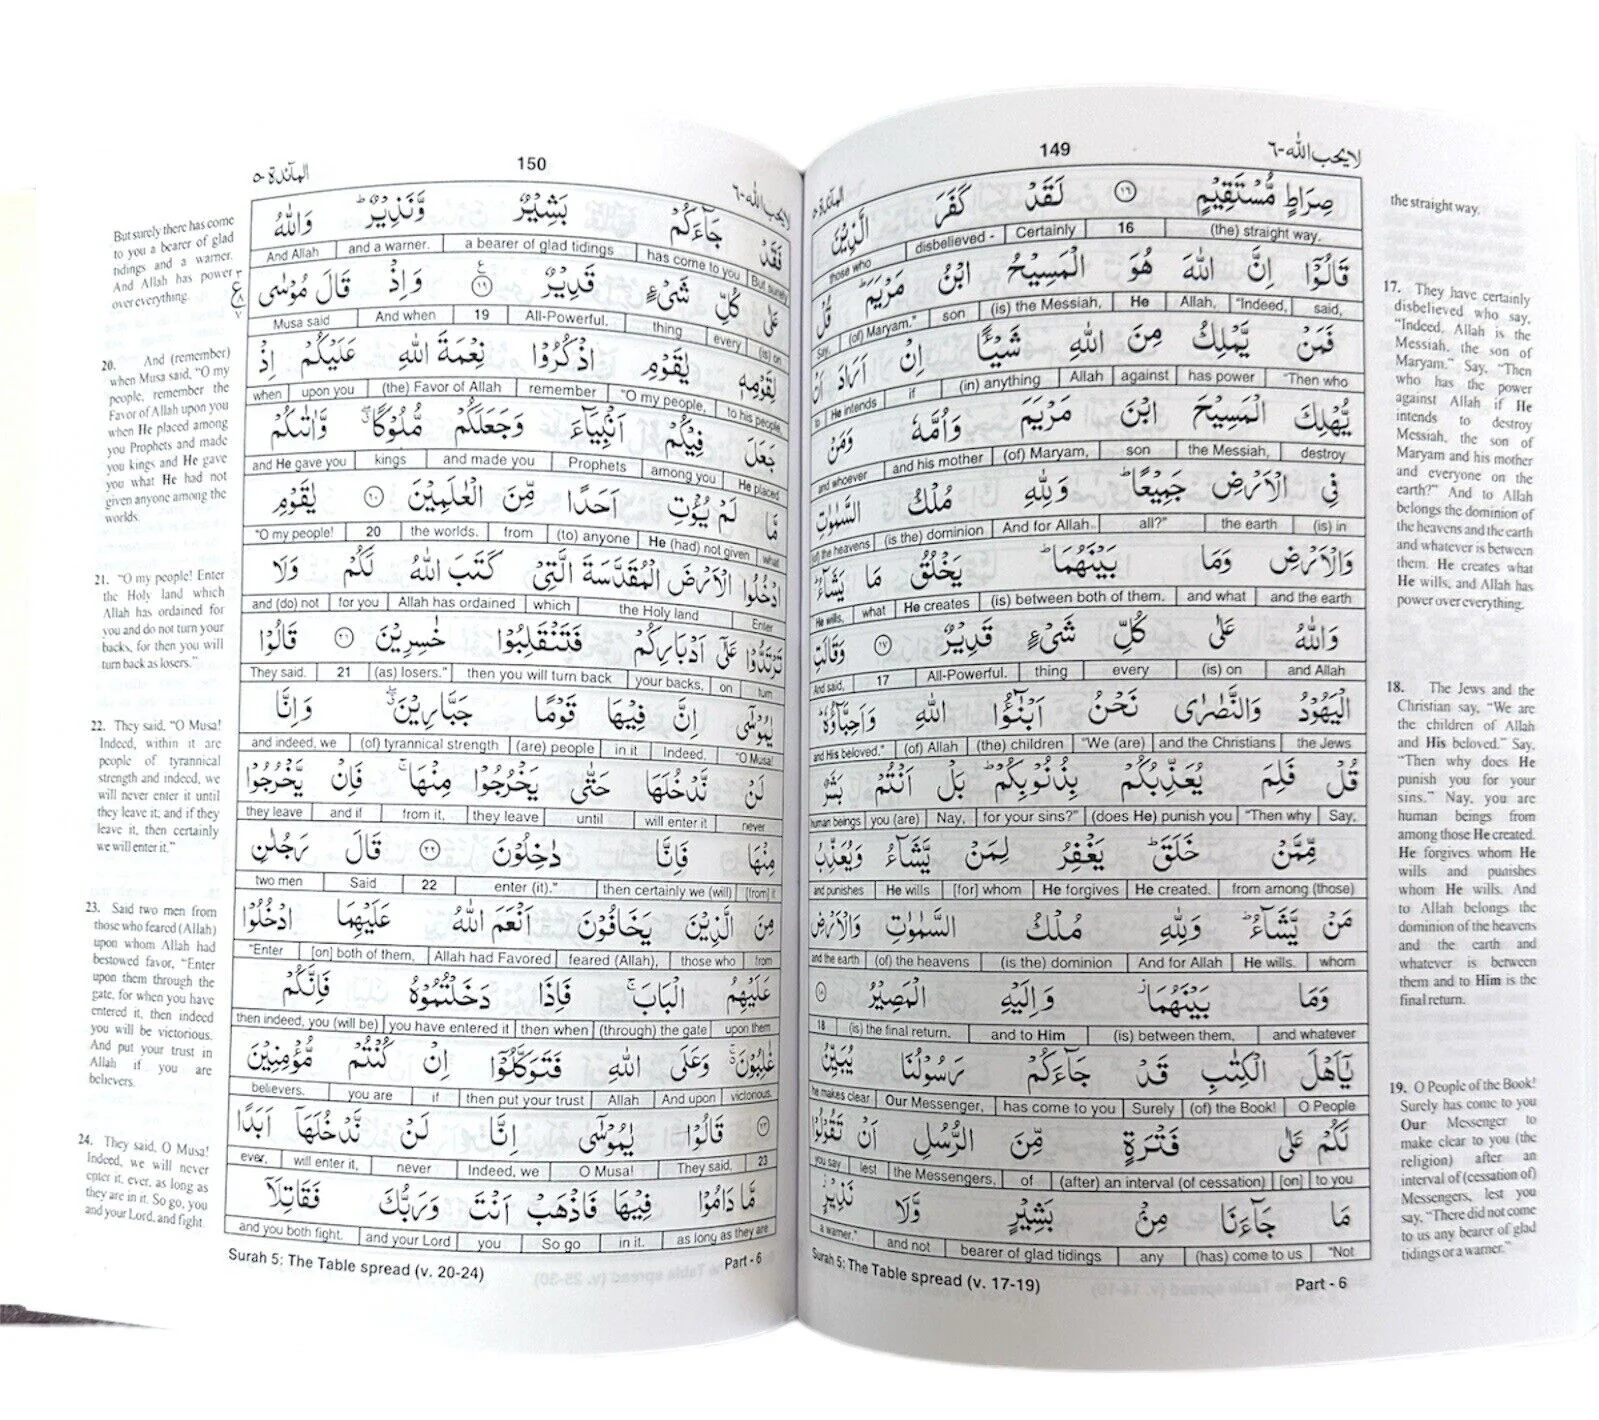 لا يحب الله-٦
149
المآئدة-٥
صِرَاطٍ مُّسْتَقِيْمٍ ۝١٦ لَقَدْ كَفَرَ الَّذِيْنَ
(the) straight way. 16 Certainly disbelieved - those who
قَالُوْٓا اِنَّ اللهَ هُوَ الْمَسِيْحُ ابْنُ مَرْيَمَ ؕ قُلْ
said, "Indeed, Allah, He (is) the Messiah, son (of) Maryam." Say,
فَمَنْ يَّمْلِكُ مِنَ اللهِ شَيْـًٔا اِنْ اَرَادَ اَنْ
"Then who has power against Allah (in) anything if He intends to
يُّهْلِكَ الْمَسِيْحَ ابْنَ مَرْيَمَ وَاُمَّهٗ وَمَنْ
destroy the Messiah, son (of) Maryam, and his mother and whoever
فِي الْاَرْضِ جَمِيْعًا ؕ وَلِلّٰهِ مُلْكُ السَّمٰوٰتِ
(is) in the earth all?" And for Allah (is the) dominion (of) the heavens
وَالْاَرْضِ وَمَا بَيْنَهُمَا ؕ يَخْلُقُ مَا يَشَآءُ ؕ
and the earth and what (is) between both of them. He creates what He wills,
وَاللهُ عَلٰى كُلِّ شَيْءٍ قَدِيْرٌ ۝١٧ وَقَالَتِ
and Allah (is) on every thing All-Powerful. 17 And said,
الْيَهُوْدُ وَالنَّصٰرٰى نَحْنُ اَبْنٰٓؤُا اللهِ وَاَحِبَّآؤُهٗ ؕ
the Jews and the Christians "We (are) (the) children (of) Allah and His beloved."
قُلْ فَلِمَ يُعَذِّبُكُمْ بِذُنُوْبِكُمْ ؕ بَلْ اَنْتُمْ بَشَرٌ
Say, "Then why (does He) punish you for your sins?" Nay, you (are) human beings
مِّمَّنْ خَلَقَ ؕ يَغْفِرُ لِمَنْ يَّشَآءُ وَيُعَذِّبُ
from among (those) He created. He forgives [for] whom He wills and punishes
مَنْ يَّشَآءُ ؕ وَلِلّٰهِ مُلْكُ السَّمٰوٰتِ وَالْاَرْضِ
whom He wills. And for Allah (is the) dominion (of) the heavens and the earth
وَمَا بَيْنَهُمَا ؗ وَاِلَيْهِ الْمَصِيْرُ ۝١٨
and whatever (is) between them, and to Him (is) the final return. 18
يٰٓاَهْلَ الْكِتٰبِ قَدْ جَآءَكُمْ رَسُوْلُنَا يُبَيِّنُ
O People (of) the Book! Surely has come to you Our Messenger, he makes clear
لَكُمْ عَلٰى فَتْرَةٍ مِّنَ الرُّسُلِ اَنْ تَقُوْلُوْا
to you [on] (after) an interval (of cessation) of the Messengers, lest you say
مَا جَآءَنَا مِنْۢ بَشِيْرٍ وَّلَا نَذِيْرٍ ؗ
"Not (has) come to us any bearer of glad tidings and not a warner."
Surah 5: The Table spread (v. 17-19)
Part - 6
the straight way.
17. They have certainly
disbelieved who say,
"Indeed, Allah is the
Messiah, the son of
Maryam." Say, "Then
who has the power
against Allah if He
intends to destroy
Messiah, the son of
Maryam and his mother
and everyone on the
earth?" And to Allah
belongs the dominion of
the heavens and the earth
and whatever is between
them. He creates what
He wills, and Allah has
power over everything.
18. The Jews and the
Christian say, "We are
the children of Allah
and His beloved." Say,
"Then why does He
punish you for your
sins." Nay, you are
human beings from
among those He created.
He forgives whom He
wills and punishes
whom He wills. And
to Allah belongs the
dominion of the heavens
and the earth and
whatever is between
them and to Him is the
final return.
19. O People of the Book!
Surely has come to you
Our Messenger to
make clear to you (the
religion) after an
interval of (cessation) of
Messengers, lest you
say, "There did not come
to us any bearer of glad
tidings or a warner."
لا يحب الله-٦
150
المآئدة-٥
فَقَدْ جَآءَكُمْ بَشِيْرٌ وَّنَذِيْرٌ ؕ وَاللهُ
But surely has come to you a bearer of glad tidings and a warner. And Allah
عَلٰى كُلِّ شَيْءٍ قَدِيْرٌ ۝١٩ وَاِذْ قَالَ مُوْسٰى
(is) on every thing All-Powerful. 19 And when Musa said
لِقَوْمِهٖ يٰقَوْمِ اذْكُرُوْا نِعْمَةَ اللهِ عَلَيْكُمْ اِذْ
to his people, "O my people, remember (the) Favor of Allah upon you when
جَعَلَ فِيْكُمْ اَنْۢبِيَآءَ وَجَعَلَكُمْ مُّلُوْكًا ۖ وَّاٰتٰىكُمْ
He placed among you Prophets and made you kings and He gave you
مَّا لَمْ يُؤْتِ اَحَدًا مِّنَ الْعٰلَمِيْنَ ۝٢٠ يٰقَوْمِ
what He (had) not given (to) anyone from the worlds. 20 "O my people!
ادْخُلُوا الْاَرْضَ الْمُقَدَّسَةَ الَّتِيْ كَتَبَ اللهُ لَكُمْ وَلَا
Enter the Holy land which Allah has ordained for you and (do) not
تَرْتَدُّوْا عَلٰٓى اَدْبَارِكُمْ فَتَنْقَلِبُوْا خٰسِرِيْنَ ۝٢١ قَالُوْا
turn on your backs, then you will turn back (as) losers." 21 They said,
يٰمُوْسٰٓى اِنَّ فِيْهَا قَوْمًا جَبَّارِيْنَ ۖ وَاِنَّا
"O Musa! Indeed, in it (are) people (of) tyrannical strength and indeed, we
لَنْ نَّدْخُلَهَا حَتّٰى يَخْرُجُوْا مِنْهَا ۚ فَاِنْ يَّخْرُجُوْا
never will enter it until they leave from it, and if they leave
مِنْهَا فَاِنَّا دٰخِلُوْنَ ۝٢٢ قَالَ رَجُلٰنِ
[from] it then certainly we (will) enter (it)." 22 Said two men
مِنَ الَّذِيْنَ يَخَافُوْنَ اَنْعَمَ اللهُ عَلَيْهِمَا ادْخُلُوْا
from those who feared (Allah), Allah had Favored [on] both of them, "Enter
عَلَيْهِمُ الْبَابَ ۚ فَاِذَا دَخَلْتُمُوْهُ فَاِنَّكُمْ
upon them (through) the gate then when you have entered it then indeed, you (will be)
غٰلِبُوْنَ ۚ وَعَلَى اللهِ فَتَوَكَّلُوْٓا اِنْ كُنْتُمْ مُّؤْمِنِيْنَ
victorious. And upon Allah then put your trust if you are believers.
۝٢٣ قَالُوْا يٰمُوْسٰٓى اِنَّا لَنْ نَّدْخُلَهَآ اَبَدًا
23 They said, O Musa! Indeed, we never will enter it, ever,
مَّا دَامُوْا فِيْهَا فَاذْهَبْ اَنْتَ وَرَبُّكَ فَقَاتِلَآ
as long as they are in it. So go you and your Lord and you both fight.
Surah 5: The Table spread (v. 20-24)
Part - 6
But surely there has come
to you a bearer of glad
tidings and a warner.
And Allah has power
over everything.
20. And (remember)
when Musa said, "O my
people, remember the
Favor of Allah upon you
when He placed among
you Prophets and made
you kings and He gave
you what He had not
given anyone among the
worlds.
21. "O my people! Enter
the Holy land which
Allah has ordained for
you and do not turn your
backs, for then you will
turn back as losers."
22. They said, "O Musa!
Indeed, within it are
people of tyrannical
strength and indeed, we
will never enter it until
they leave it; and if they
leave it, then certainly
we will enter it."
23. Said two men from
those who feared (Allah)
upon whom Allah had
bestowed favor, "Enter
upon them through the
gate, for when you have
entered it, then indeed
you will be victorious.
And put your trust in
Allah if you are
believers.
24. They said, O Musa!
Indeed, we will never
enter it, ever, as long as
they are in it. So go, you
and your Lord, and fight.